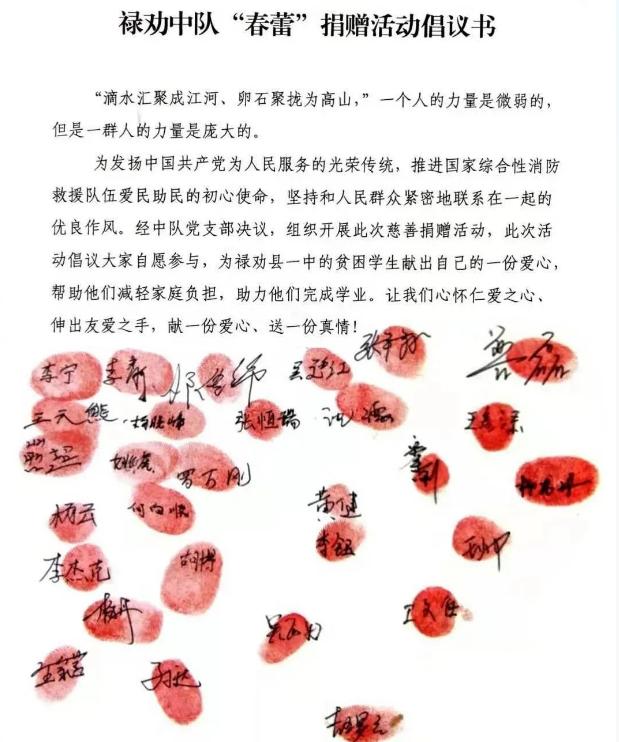 禄劝中队“春蕾”捐赠活动倡议书
“滴水汇聚成江河、卵石聚拢为高山，”一个人的力量是微弱的，
但是一群人的力量是庞大的。
为发扬中国共产党为人民服务的光荣传统，推进国家综合性消防
救援队伍爱民助民的初心使命，坚持和人民群众紧密地联系在一起的
优良作风。经中队党支部决议，组织开展此次慈善捐赠活动，此次活
动倡议大家自愿参与，为禄劝县一中的贫困学生献出自己的一份爱心，
帮助他们减轻家庭负担，助力他们完成学业。让我们心怀仁爱之心、
伸出友爱之手，献一份爱心、送一份真情！
李宁
王天熊 张恒瑞
罗万刚
杨云 黄健
李杰龙 胡博 李钰